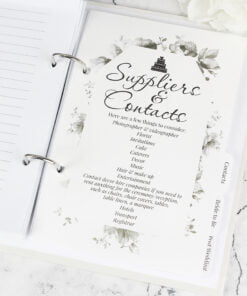 Suppliers
&
Contacts
Here are a few things to consider:
Photographer & videographer
Florist
Invitations
Cake
Caterers
Decor
Music
Hair & make up
Entertainment
Contact decor hire companies if you need to
rent anything for the ceremony/reception,
such as chairs, chair covers, tables,
table linen, a marquee
Hotels
Transport
Registrar
Contacts
Bride to Be
Post Wedding